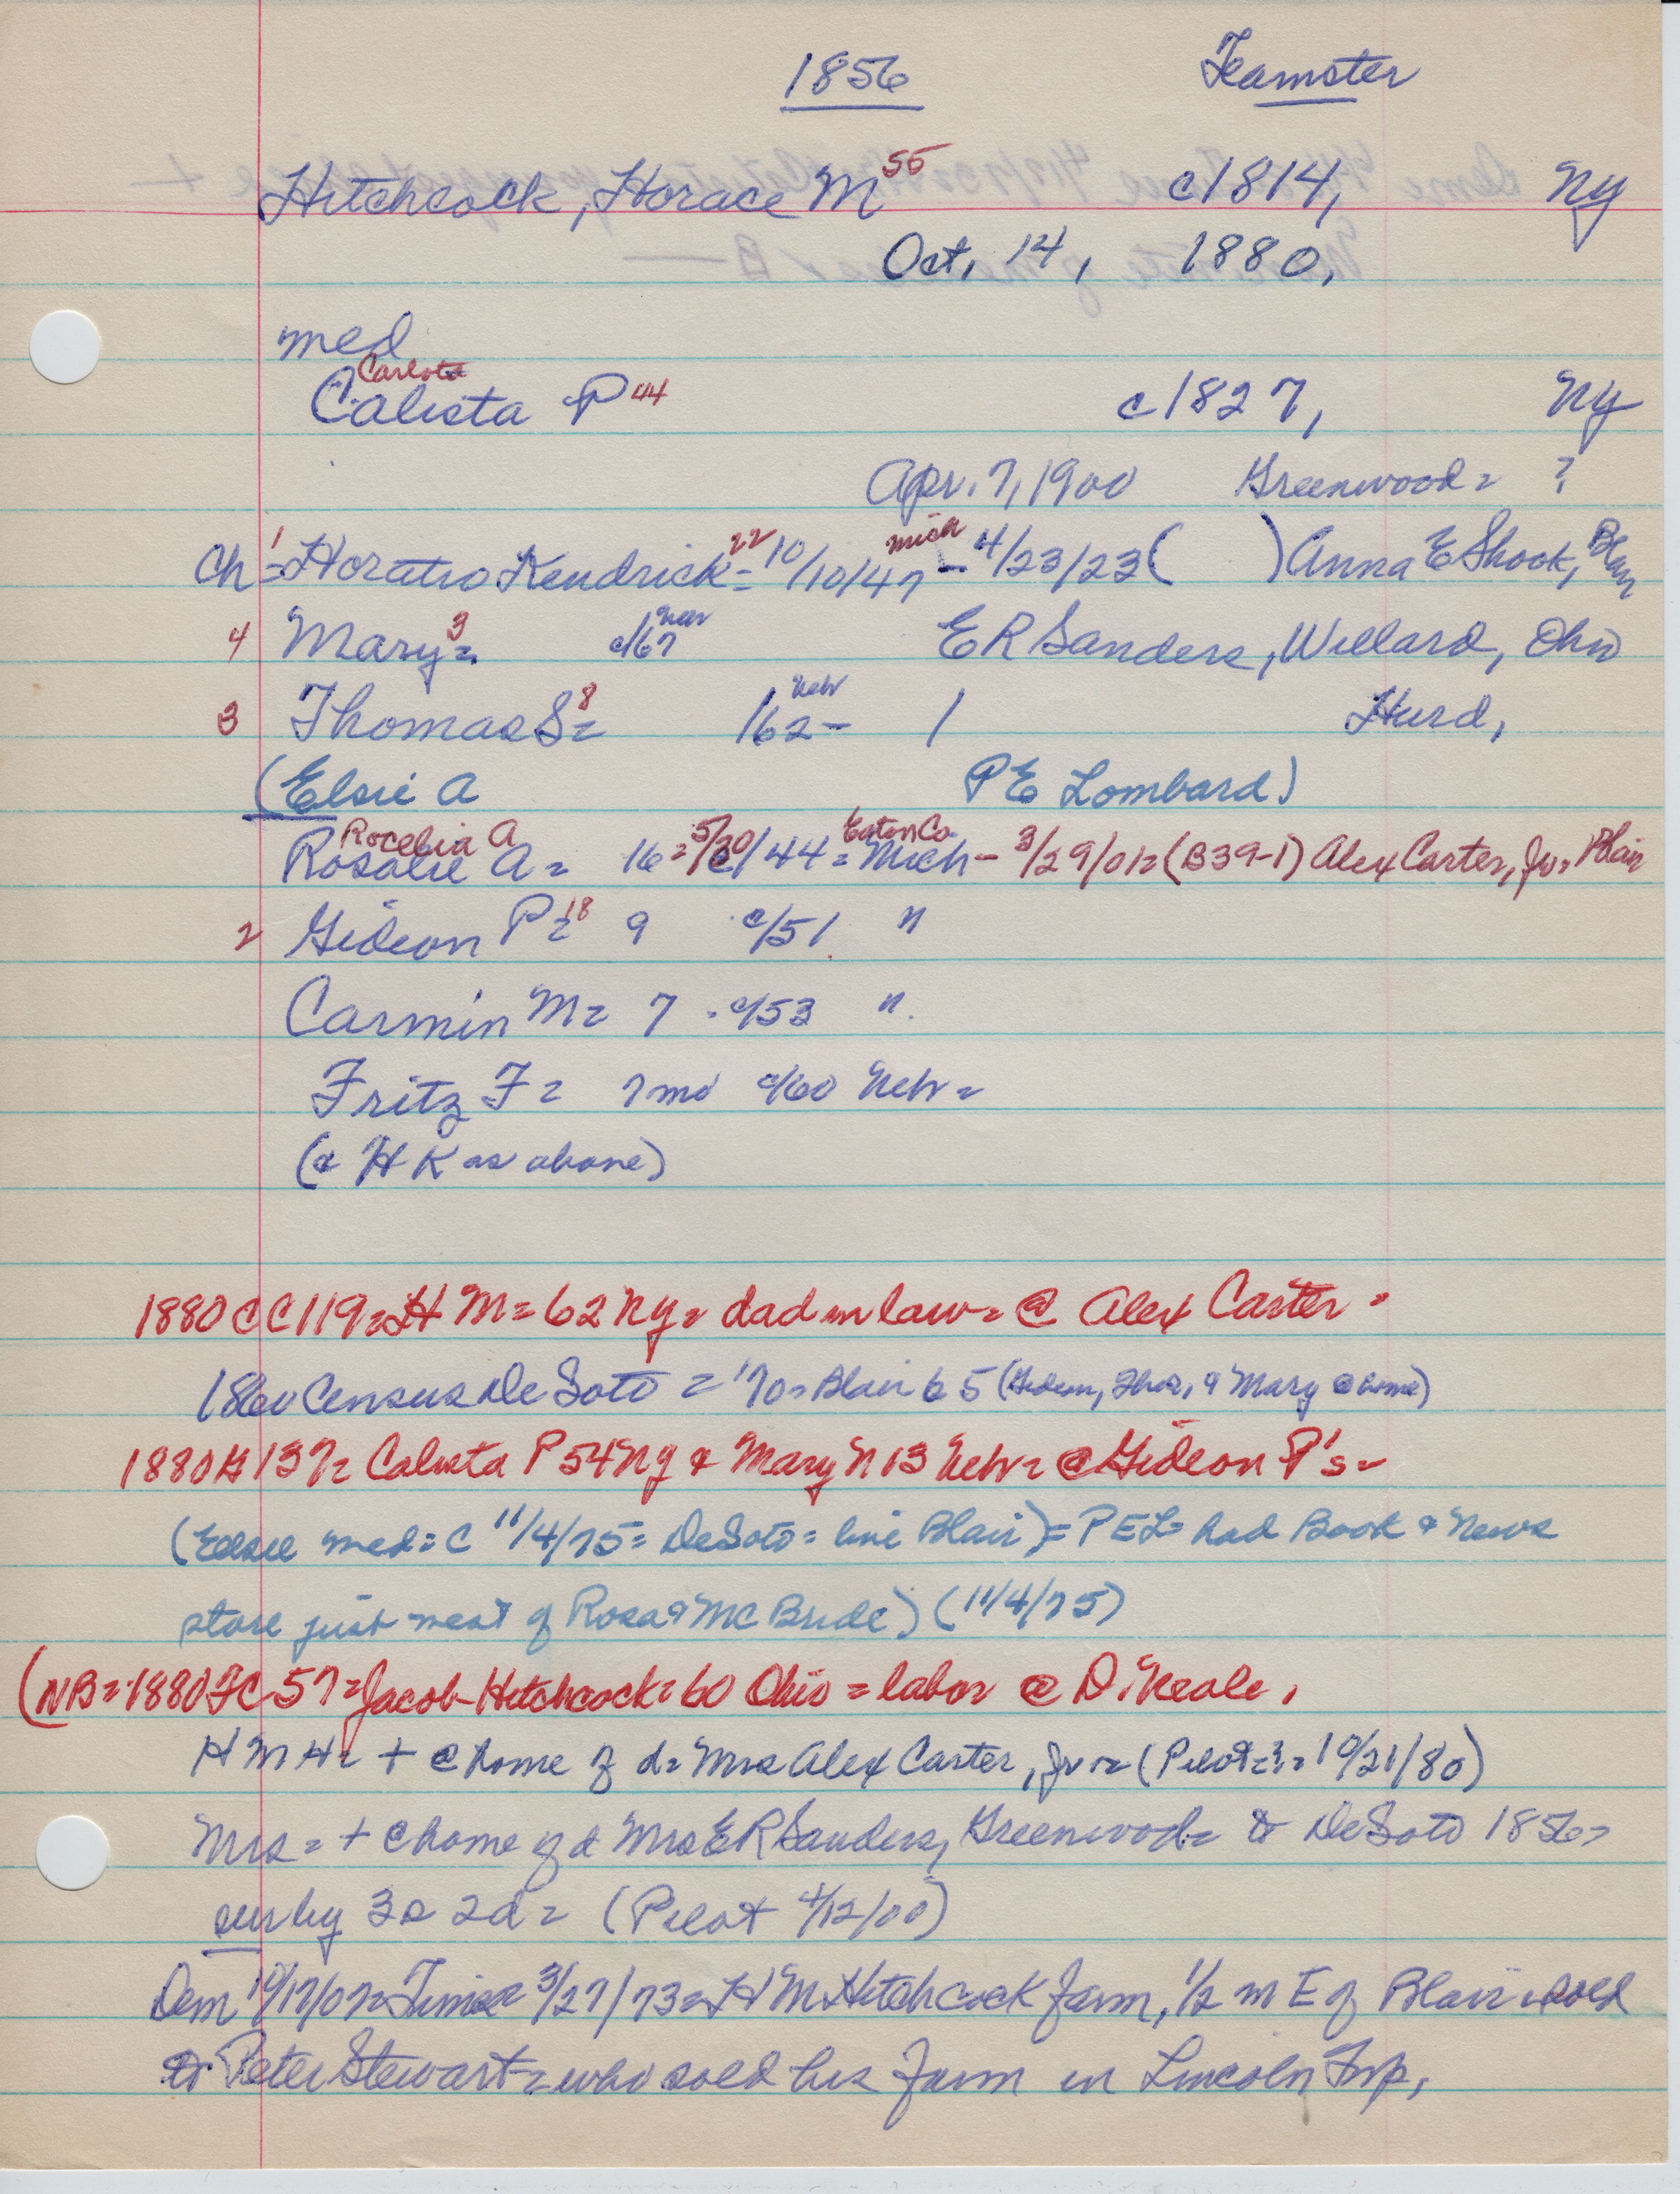 1856 Teamster
Hitchcock, Horace M 55 c1814, Ny
Oct, 14, 1880,
med
Carlota
Calista P 44 c1827, Ny
Apr. 7, 1900 Greenwood = ?
Ch = 1 Horatio Kendrick = 22 10/10/47 mich - 4/23/23 ( ) Anna E Shook, Blair
4 Mary = 3 c/67 Ner E R Sanders, Willard, Ohio
3 Thomas S = 8 /62 - Nebr / Hurd,
(Elsie A P E Lombard)
Rocelia A
Rosalie A = 16 = 5/30/44 = Eaton Co Mich - 3/29/01 = (B39-1) Alex Carter, Jr, Blair
2 Gideon P = 18 9 c/51 "
Carmin M = 7 c/53 "
Fritz F = 7 mo c/60 Nebr =
(& H K as above)
1880 CC 119 = H M = 62 Ny = dad in law = @ Alex Carter =
1860 Census De Soto = '70 = Blair 65 (Gideon, Thos, & Mary @ home)
1880 137 = Calista P 54 Ny & Mary N 13 Nebr = @ Gideon P's =
(Elsie med = C 11/4/75 = DeSoto = live Blair) = P E L = had Book & News
store just west of Rosa & McBride) (11/4/75)
(NB = 1880 FC 57 = Jacob Hitchcock = 60 Ohio = labor @ D. Neale,
H M H = + @ home of d = Mrs Alex Carter, Jr = (Pilot = 10/21/80)
Mrs = + @ home of d Mrs E R Sanders, Greenwood = to DeSoto 1856 =
sur by 3 s 2 d = (Pilot 4/12/00)
Dem 10/17/07 = Times 3/27/73 = H M Hitchcock farm, 1/2 m E of Blair sold
to Peter Stewart = who sold his farm in Lincoln Twp,